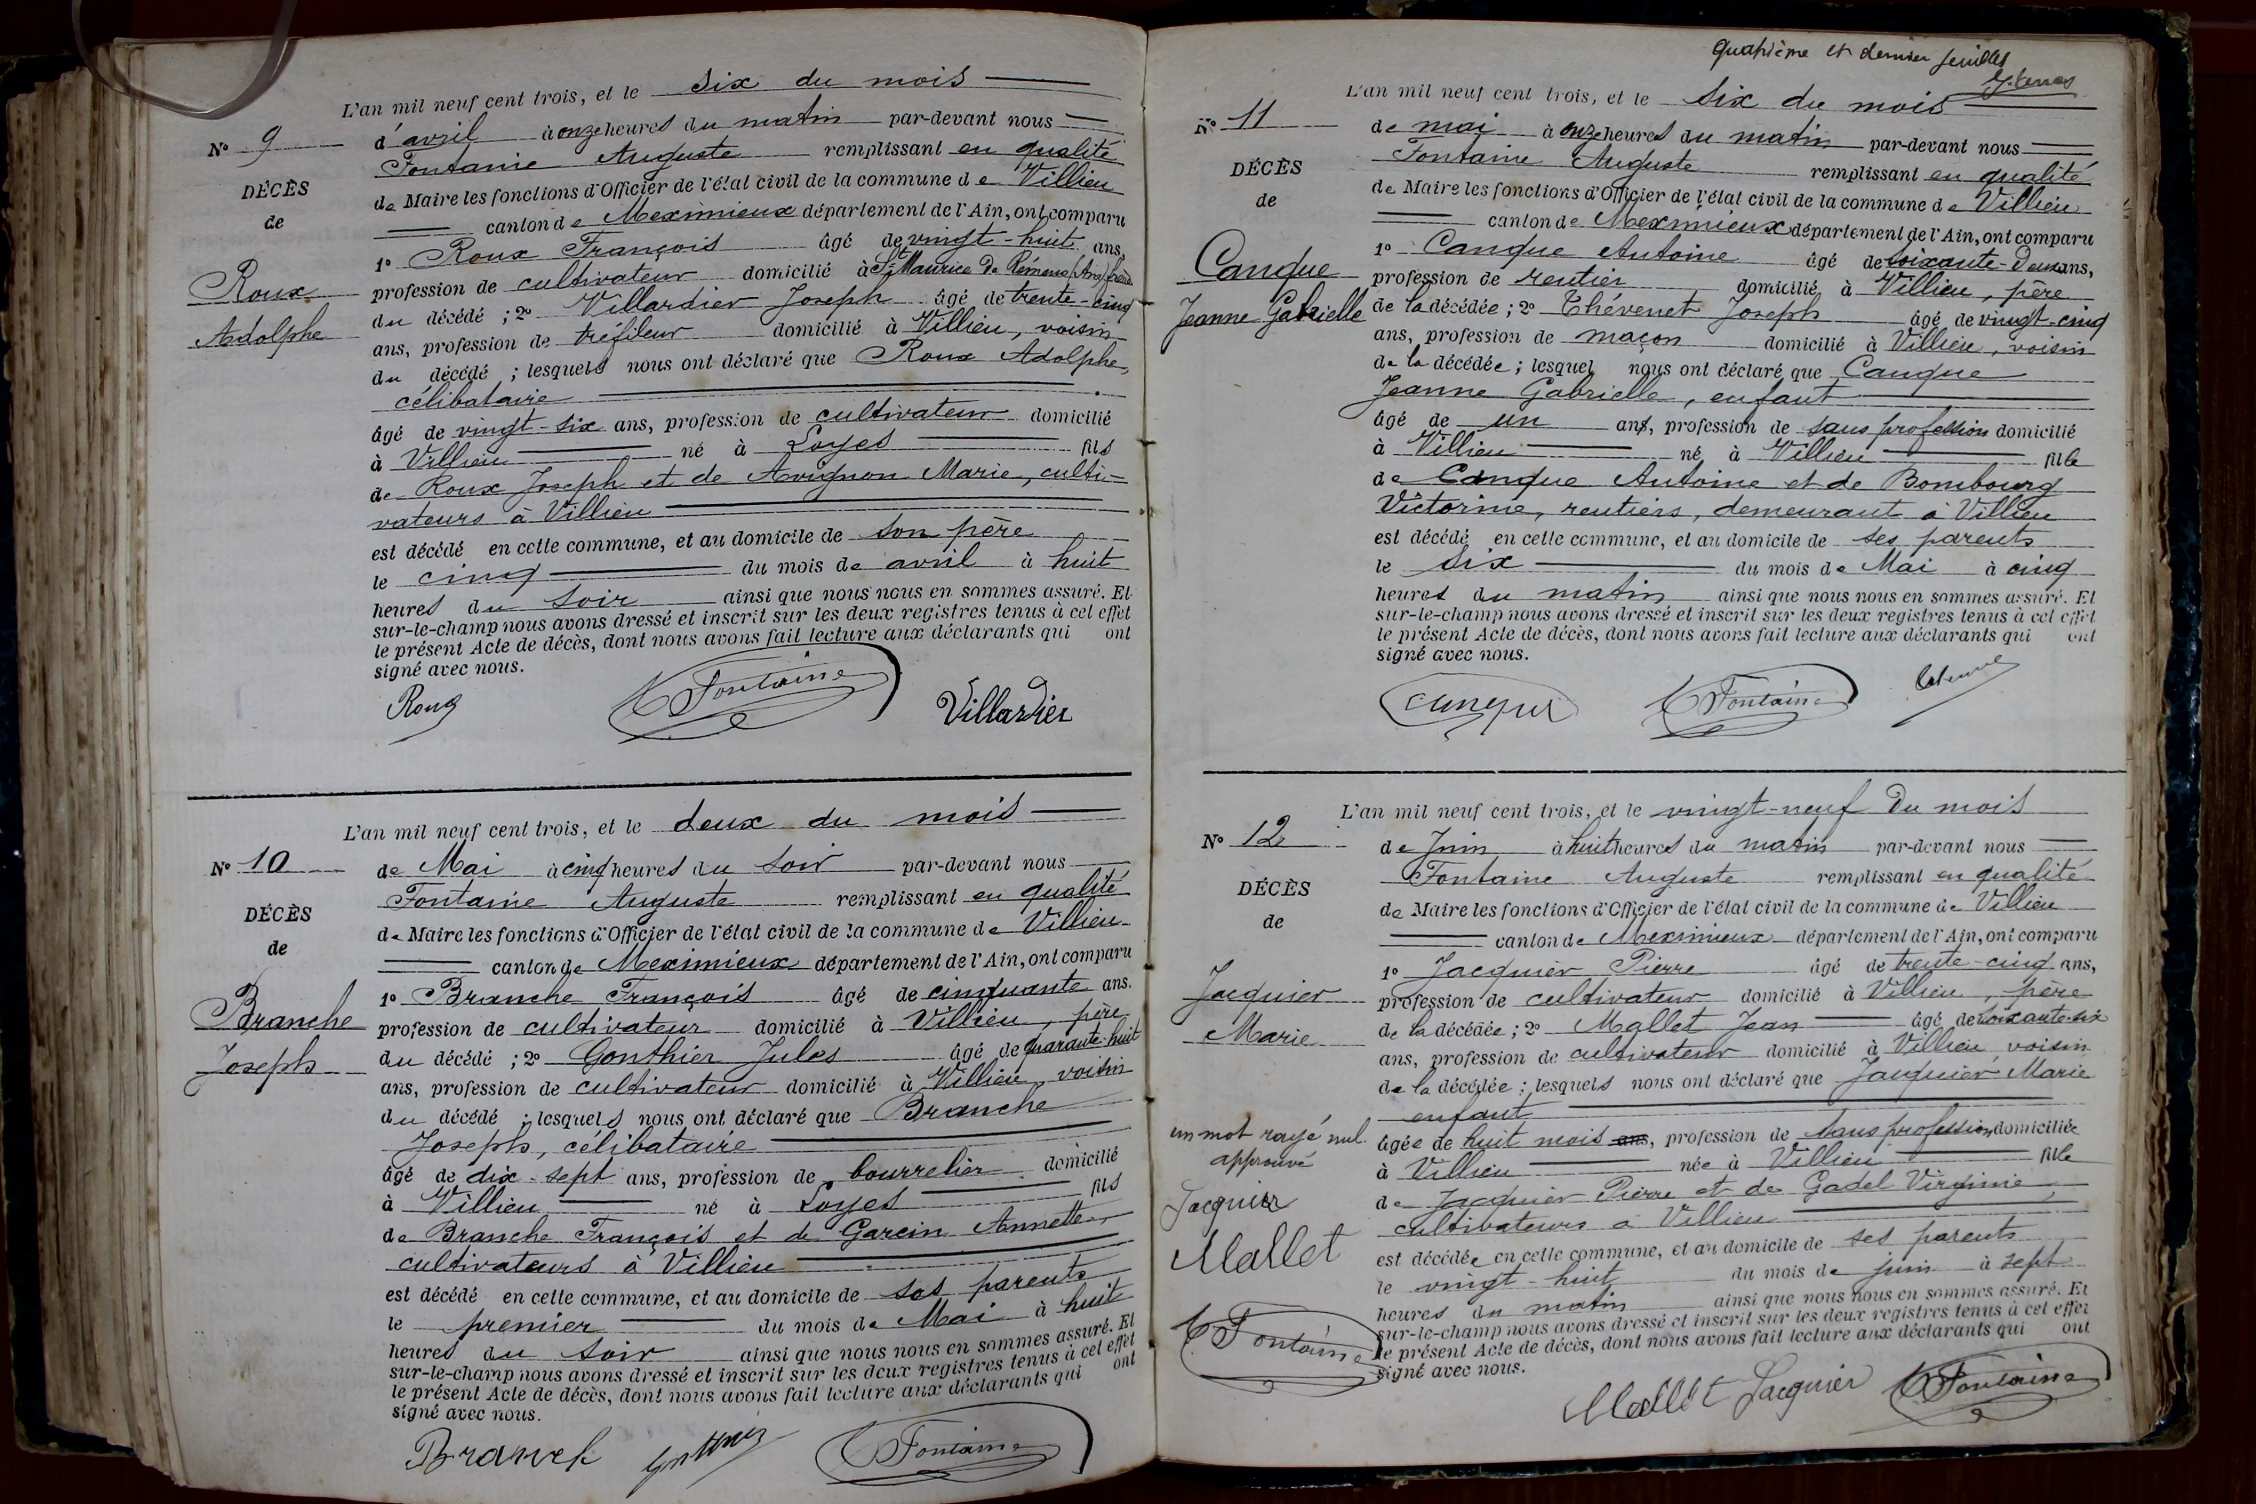 L'an mil neuf cent trois, et le six du mois
N° 9 d'avril à onze heures du matin par-devant nous
Fontaine Auguste remplissant en qualité
DÉCÈS
de Maire les fonctions d'Officier de l'état civil de la commune de Villieu
de
canton de Meximieux département de l'Ain, ont comparu
1° Roux François âgé de vingt-huit ans,
Roux
profession de cultivateur domicilié à St Maurice de Rémens (Ain) frère
du décédé ; 2° Villardier Joseph âgé de trente-cinq
Adolphe
ans, profession de tréfileur domicilié à Villieu, voisin
du décédé ; lesquels nous ont déclaré que Roux Adolphe,
célibataire
âgé de vingt-six ans, profession de cultivateur domicilié
à Villieu né à Loyes fils
de Roux Joseph et de Avignon Marie, culti-
vateurs à Villieu
est décédé en cette commune, et au domicile de son père
le cinq du mois de avril à huit
heures du soir ainsi que nous nous en sommes assuré. Et
sur-le-champ nous avons dressé et inscrit sur les deux registres tenus à cet effet
le présent Acte de décès, dont nous avons fait lecture aux déclarants qui ont
signé avec nous.
Roux Fontaine Villardier
L'an mil neuf cent trois, et le deux du mois
N° 10 de Mai à cinq heures du soir par-devant nous
Fontaine Auguste remplissant en qualité
DÉCÈS
de Maire les fonctions d'Officier de l'état civil de la commune de Villieu
de
canton de Meximieux département de l'Ain, ont comparu
1° Branche François âgé de cinquante ans.
Branche
profession de cultivateur domicilié à Villieu, père
du décédé ; 2° Gonthier Jules âgé de quarante-huit
Joseph
ans, profession de cultivateur domicilié à Villieu, voisin
du décédé ; lesquels nous ont déclaré que Branche
Joseph, célibataire
âgé de dix-sept ans, profession de bourrelier domicilié
à Villieu né à Loyes fils
de Branche François et de Garcin Annette,
cultivateurs à Villieu
est décédé en cette commune, et au domicile de ses parents
le premier du mois de Mai à huit
heures du soir ainsi que nous nous en sommes assuré. Et
sur-le-champ nous avons dressé et inscrit sur les deux registres tenus à cet effet
le présent Acte de décès, dont nous avons fait lecture aux déclarants qui ont
signé avec nous.
Branche Fontaine
quatrième et dernier feuillet
L'an mil neuf cent trois, et le six du mois
N° 11 de mai à onze heures du matin par-devant nous
Fontaine Auguste remplissant en qualité
DÉCÈS
de Maire les fonctions d'Officier de l'état civil de la commune de Villieu
de
canton de Meximieux département de l'Ain, ont comparu
1° Canque Antoine âgé de soixante-deux ans,
Canque
profession de rentier domicilié à Villieu, père
Jeanne Gabrielle
de la décédée ; 2° Thévenet Joseph âgé de vingt-cinq
ans, profession de maçon domicilié à Villieu, voisin
de la décédée ; lesquel nous ont déclaré que Canque
Jeanne Gabrielle, enfant
âgé de un ans, profession de sans profession domicilié
à Villieu né à Villieu fille
de Canque Antoine et de Bombourg
Victorine, rentiers, demeurant à Villieu
est décédé en cette commune, et au domicile de ses parents
le six du mois de Mai à cinq
heures du matin ainsi que nous nous en sommes assuré. Et
sur-le-champ nous avons dressé et inscrit sur les deux registres tenus à cet effet
le présent Acte de décès, dont nous avons fait lecture aux déclarants qui ont
signé avec nous.
Canque Fontaine
L'an mil neuf cent trois, et le vingt-neuf du mois
N° 12 de Juin à huit heures du matin par-devant nous
Fontaine Auguste remplissant en qualité
DÉCÈS
de Maire les fonctions d'Officier de l'état civil de la commune de Villieu
de
canton de Meximieux département de l'Ain, ont comparu
1° Jacquier Pierre âgé de trente-cinq ans,
Jacquier
profession de cultivateur domicilié à Villieu, père
Marie
de la décédée ; 2° Mallet Jean âgé de soixante-six
ans, profession de cultivateur domicilié à Villieu, voisin
de la décédée ; lesquels nous ont déclaré que Jacquier Marie
enfant
un mot rayé nul
âgée de huit mois ans, profession de sans profession, domiciliée
approuvé
à Villieu née à Villieu fille
Jacquier
de Jacquier Pierre et de Gadel Virginie,
cultivateurs à Villieu
Mallet
est décédée en cette commune, et au domicile de ses parents
le vingt-huit du mois de juin à sept
heures du matin ainsi que nous nous en sommes assuré. Et
sur-le-champ nous avons dressé et inscrit sur les deux registres tenus à cet effet
Fontaine
le présent Acte de décès, dont nous avons fait lecture aux déclarants qui ont
signé avec nous.
Mallet Jacquier Fontaine